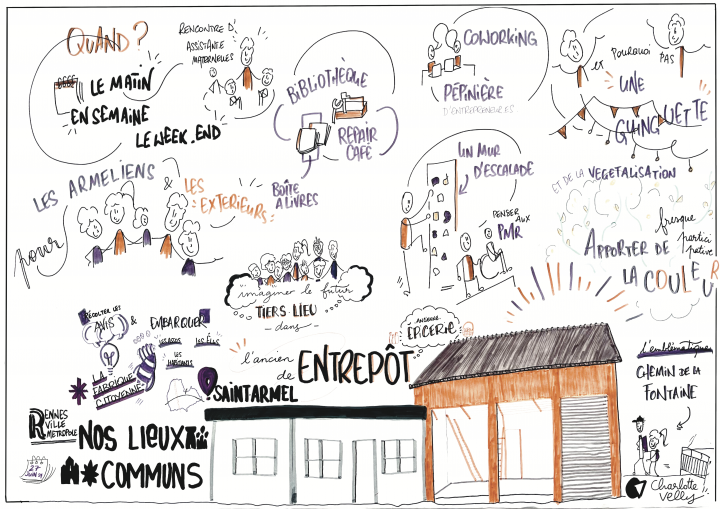 QUAND?
LE MATIN
EN SEMAINE
LE WEEK-END
RENCONTRE D'
ASSISTANTE
MATERNELLES
BIBLIOTHÈQUE
REPAIR
CAFE
BOÎTE
A LIVRES
COWORKING
PÉPINIÈRE
D'ENTREPRENEUR.ES
et POURQUOI PAS
UNE
GUINGUETTE
UN MUR
D'ESCALADE
PENSER
AUX
PMR
ET DE LA VEGETALISATION
fresque
participative
APPORTER DE
LA COULEUR
pour
LES ARMELIENS
& LES
EXTERIEURS
imaginer le futur
TIERS-LIEU
- dans -
l'ancien
de
ENTREPÔT
ANCIENNE
EPICERIE
SAINT ARMEL
RÉCOLTER LES
AVIS &
EMBARQUER
LES ÉLUS
LES
HABITANTS
LA
FABRIQUE
CITOYENNE
RENNES
VILLE
METROPOLE
NOS LIEUX
COMMUNS
27
l'emblématique
CHEMIN DE LA
FONTAINE
Charlotte
Velly